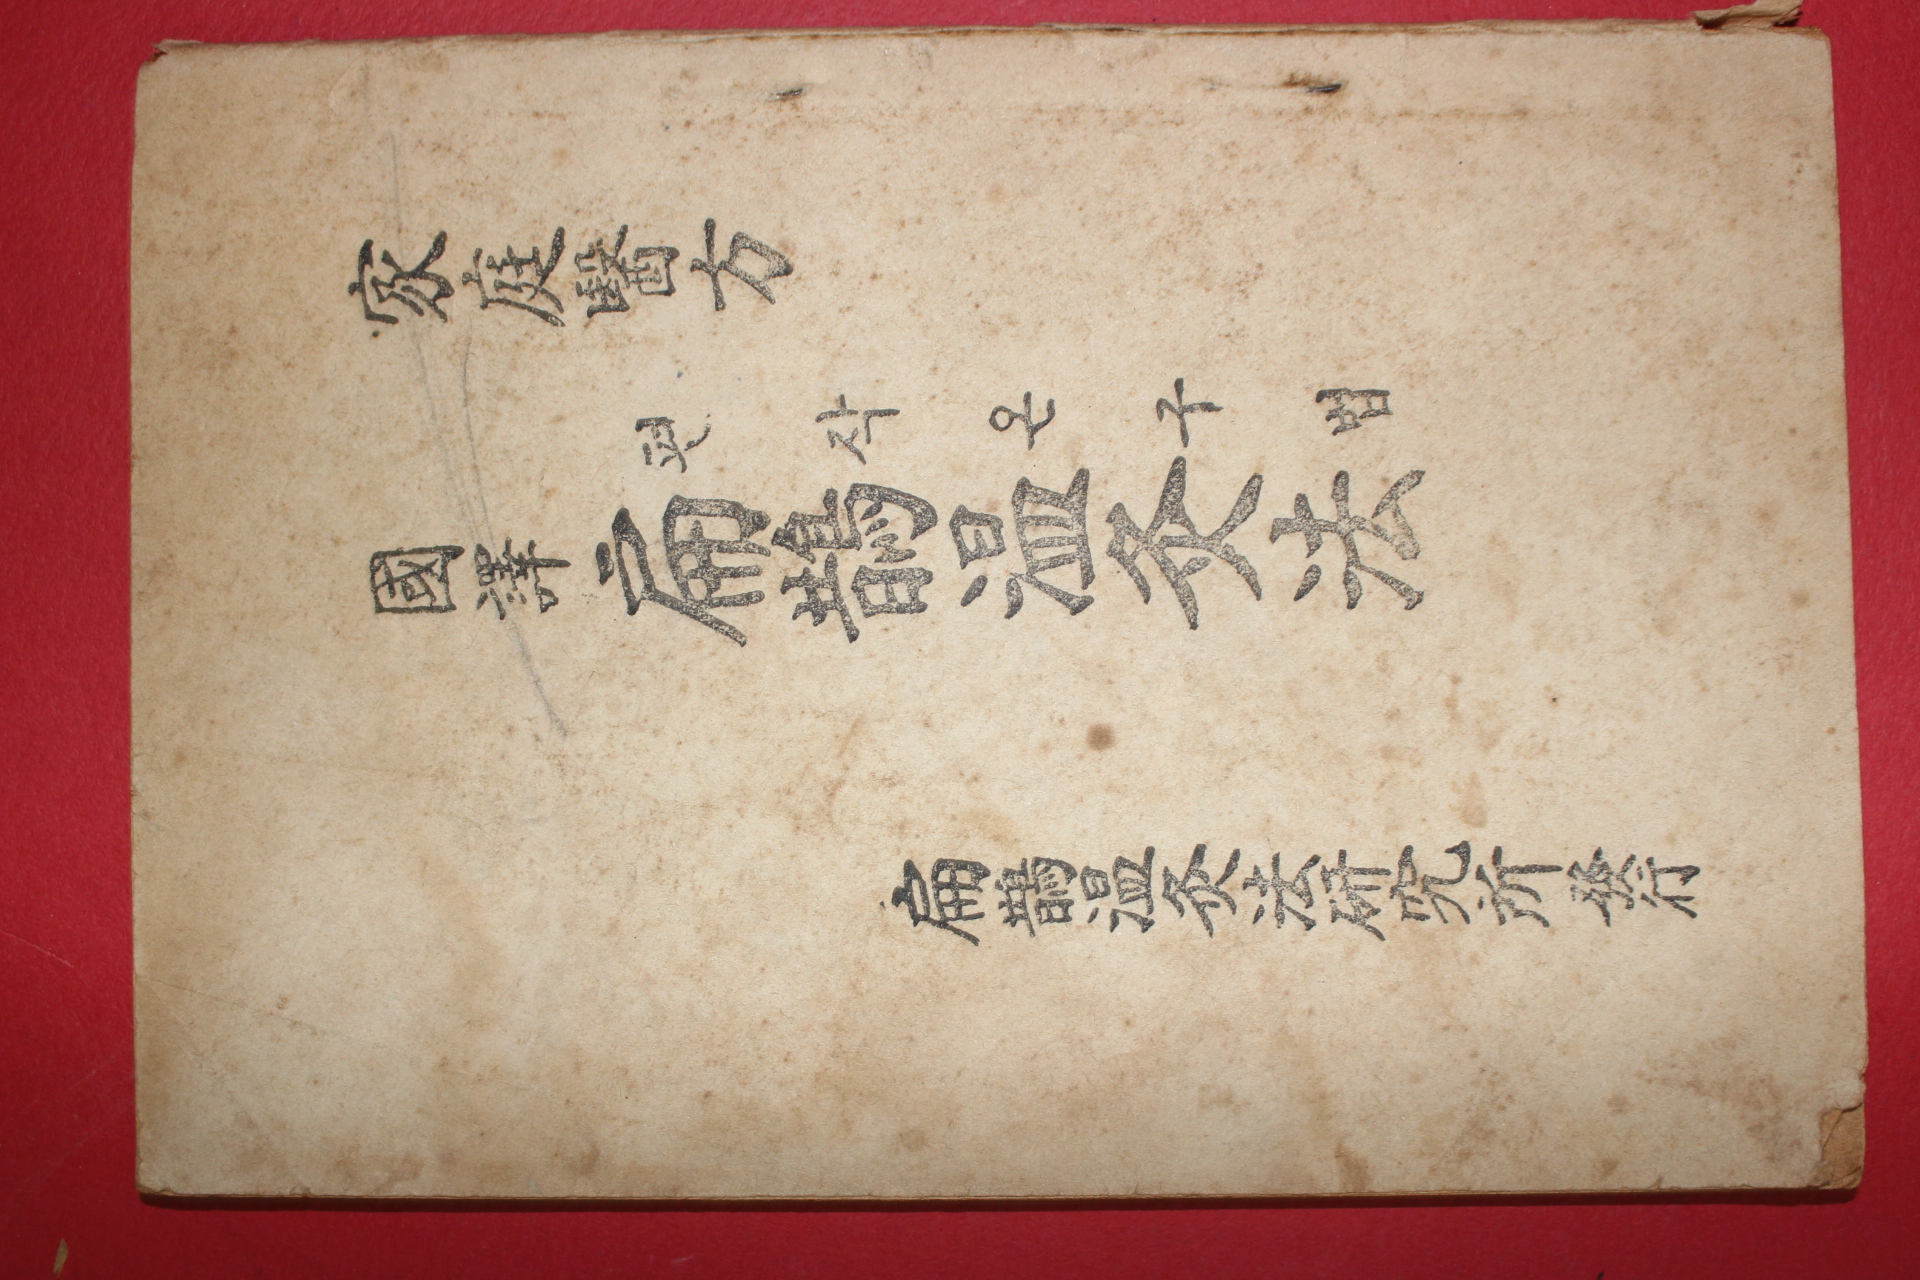 家庭醫方
편작온구법
國譯 扁鵲温灸法
扁鵲温灸法研究所發行